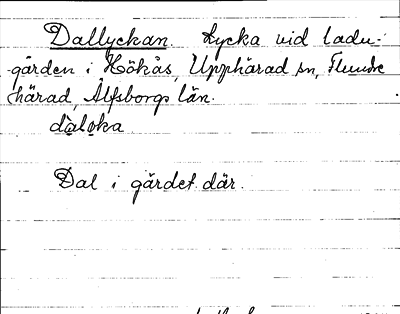 Dallyckan. Lycka vid ladu-
gården i Hökås, Upphärad sn, Flundre
härad, Älfsborgs län.
dalɵka
Dal i gärdet där.